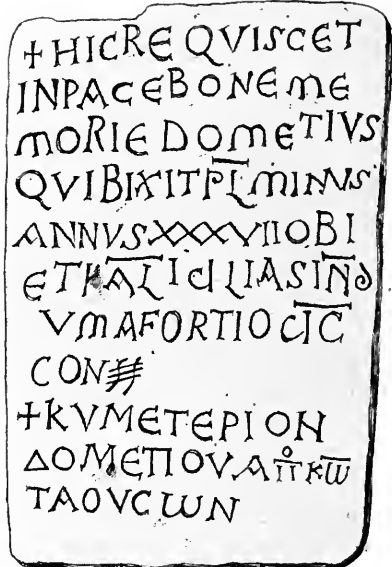 +HICREQVISCET
INPACEBONEME
MORIEDOMETIVS
QVIBIXITPL̅MINVS
ANNVSXXXVIIOBI
ETKAL̅IdLIASIN̅d
VMAFORTIOCI̅C̅
CON
+ΚVΜЄΤЄΡΙΟΝ
ΔΟΜЄΤΙΟVΑΠ̅ΚΩ̅
ΤΑΟVCΩΝ